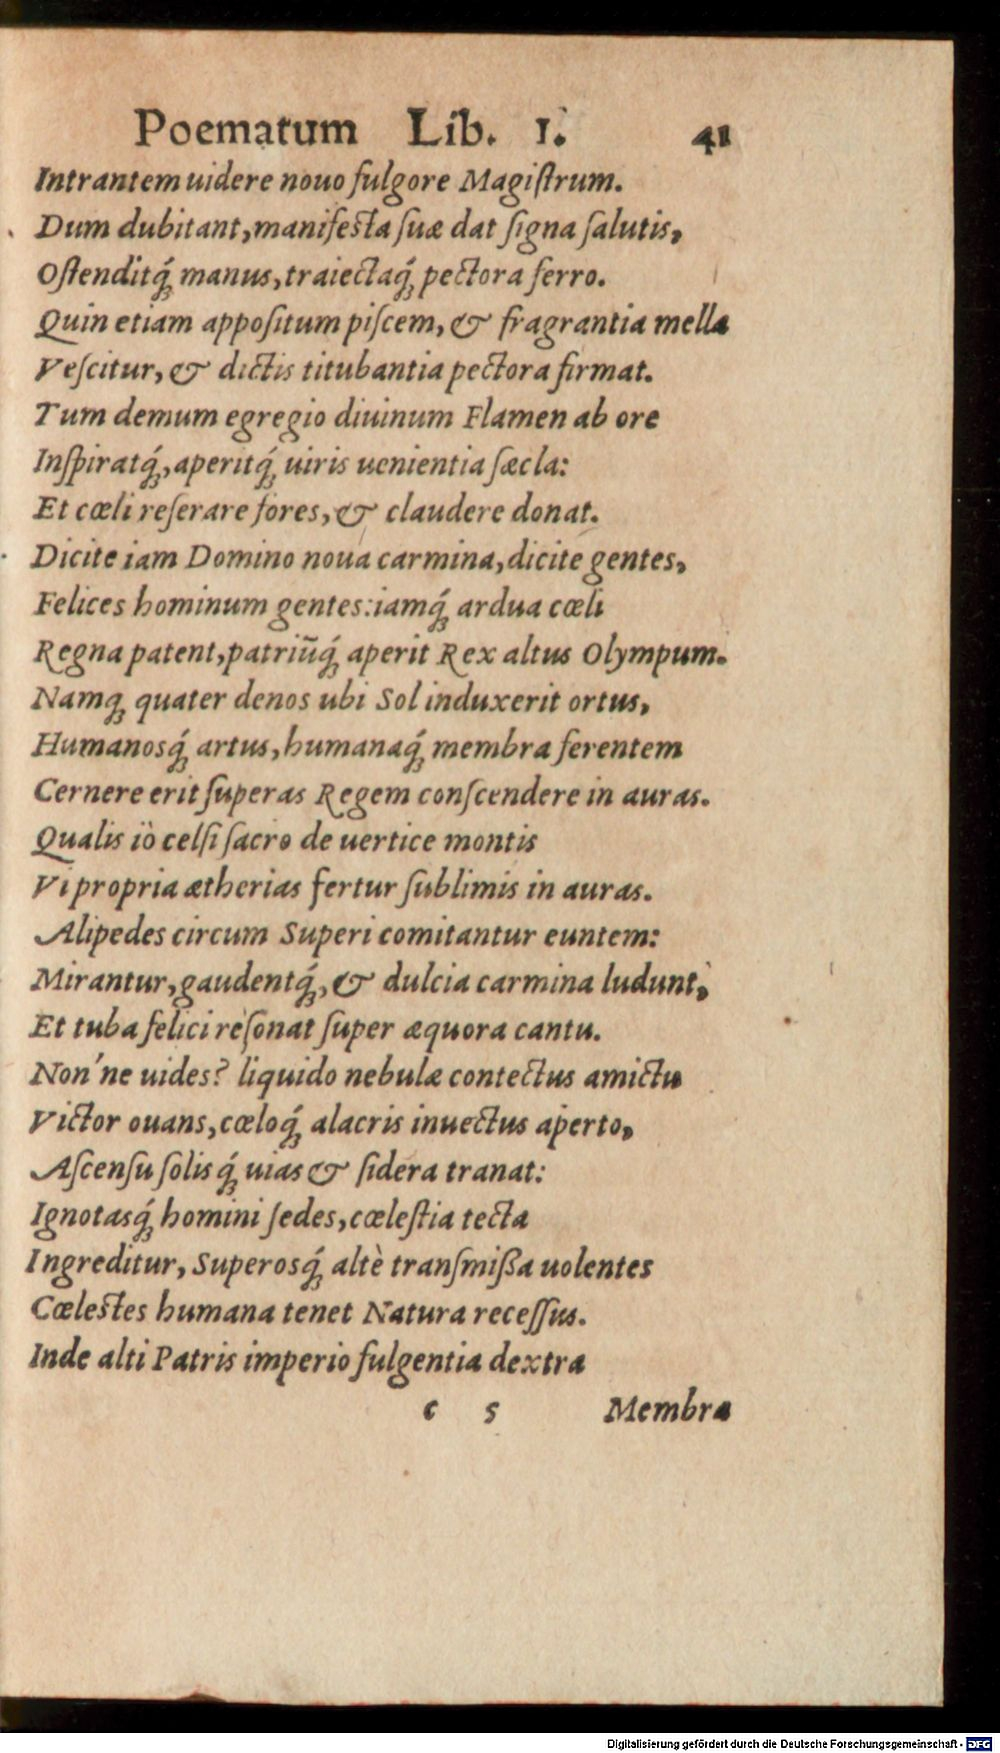 Poematum Lib. 1. 41
Intrantem uidere nouo fulgore Magiſtrum.
Dum dubitant, manifeſta ſuæ dat ſigna ſalutis,
Oſtenditq́; manus, traiectaq́; pectora ferro.
Quin etiam appoſitum piſcem, & fragrantia mella
Veſcitur, & dictis titubantia pectora firmat.
Tum demum egregio diuinum Flamen ab ore
Inſpiratq́;, aperitq́; uiris uenientia ſæcla:
Et cœli reſerare fores, & claudere donat.
Dicite iam Domino noua carmina, dicite gentes,
Felices hominum gentes: iamq́; ardua cœli
Regna patent, patriūq́; aperit Rex altus Olympum.
Namq; quater denos ubi Sol induxerit ortus,
Humanosq́; artus, humanaq́; membra ferentem
Cernere erit ſuperas Regem conſcendere in auras.
Qualis iò celſi ſacro de uertice montis
Vi propria ætherias fertur ſublimis in auras.
Alipedes circum Superi comitantur euntem:
Mirantur, gaudentq́;, & dulcia carmina ludunt,
Et tuba felici reſonat ſuper æquora cantu.
Non'ne uides? liquido nebulæ contectus amictu
Victor ouans, cœloq́; alacris inuectus aperto,
Aſcenſu ſolisq́; uias & ſidera tranat:
Ignotasq́; homini ſedes, cœleſtia tecta
Ingreditur, Superosq́; altè tranſmiſſa uolentes
Cœleſtes humana tenet Natura receſſus.
Inde alti Patris imperio fulgentia dextra
c 5 Membra
Digitalisierung gefördert durch die Deutsche Forschungsgemeinschaft - DFG